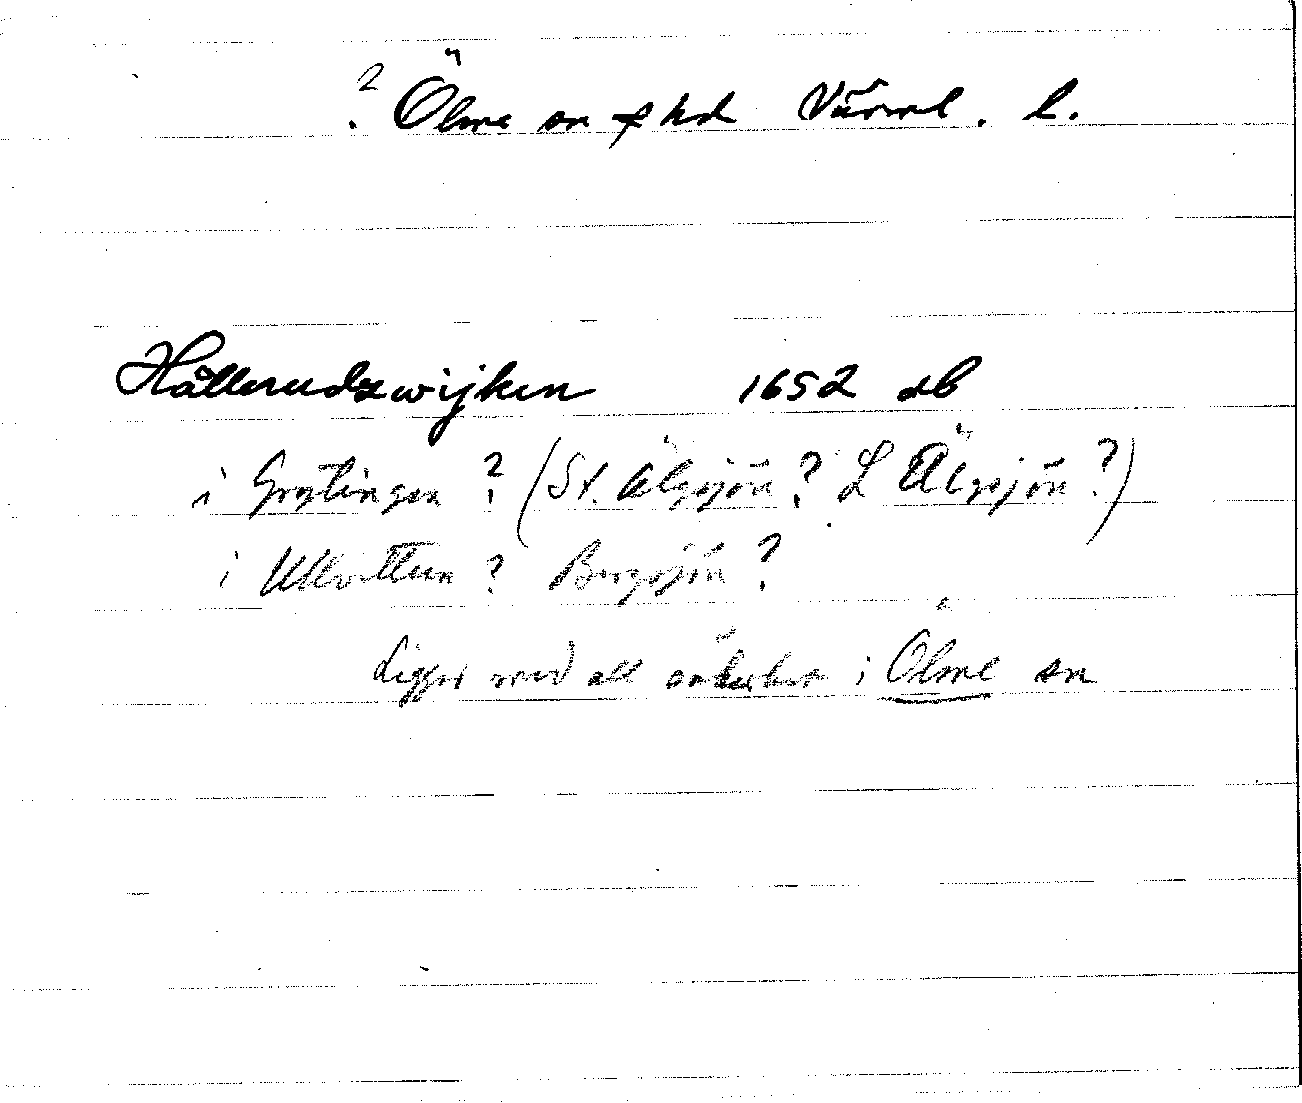 ? Ölme sn o hd Värml. l.
Hållerudzwijken 1652 db
i Grytingen ? (St. Älgsjön ? L Älgsjön ?)
i Ullvettern ? Bergsjön ?
Ligger med all säkerhet i Ölme sn